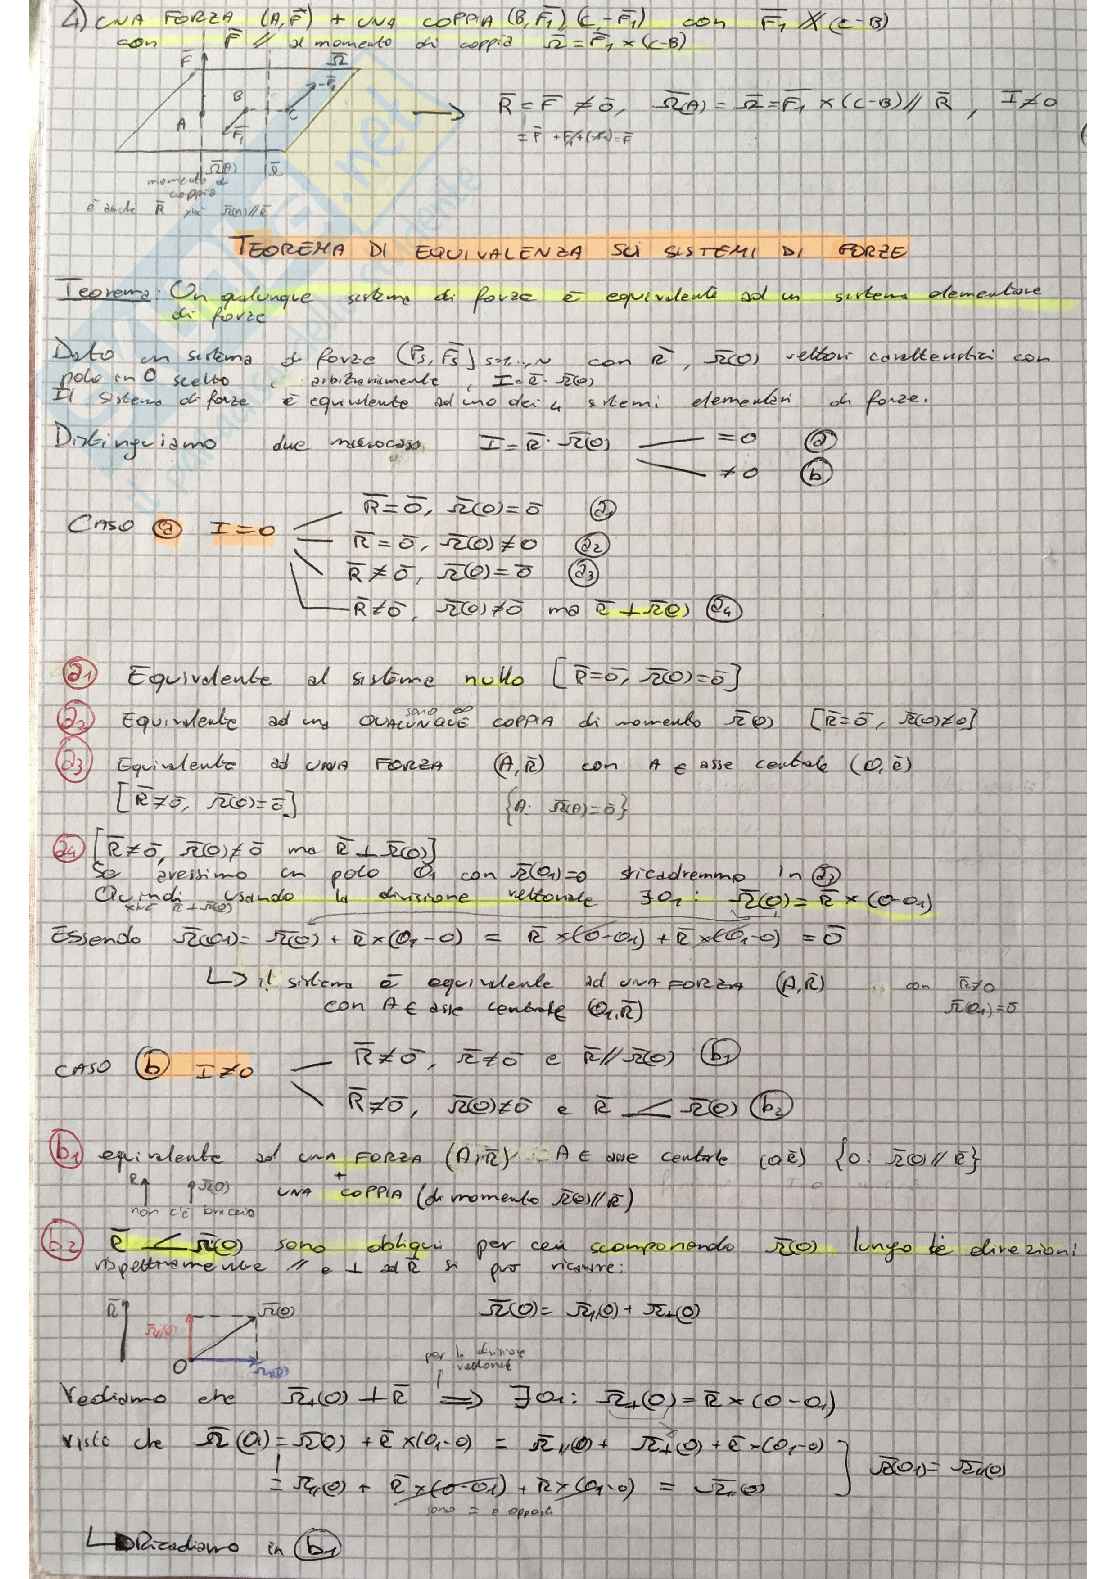 4) UNA FORZA (A, F̅) + UNA COPPIA (B, F̅₁) (C, -F̅₁) con F̅₁ ∦ (C-B)
con F̅ // al momento di coppia Ω̅ = F̅₁ × (C-B)
F̅ Ω̅
B -F̅₁
A C
F̅₁
R̅ = F̅ ≠ 0̅, Ω̅(A) = Ω̅ = F̅₁ × (C-B) // R̅, I ≠ 0
= F̅ + F̅₁ + (-F̅₁) = F̅
Ω̅(A) Ω̅
momento di
coppia
è anche R̅ Ω̅(A) // R̅
TEOREMA DI EQUIVALENZA SUI SISTEMI DI FORZE
Teorema: Un qualunque sistema di forze è equivalente ad un sistema elementare
di forze
Dato un sistema di forze (Ps, F̅s) s=1,...,N con R̅, Ω̅(O) vettori caratteristici con
polo in O scelto arbitrariamente, I = R̅ · Ω̅(O)
Il sistema di forze è equivalente ad uno dei 4 sistemi elementari di forze.
Distinguiamo due macrocasi I = R̅ · Ω̅(O) = 0 (a)
≠ 0 (b)
CASO (a) I = 0
R̅ = 0̅, Ω̅(O) = 0̅ (a1)
R̅ = 0̅, Ω̅(O) ≠ 0 (a2)
R̅ ≠ 0̅, Ω̅(O) = 0̅ (a3)
R̅ ≠ 0̅, Ω̅(O) ≠ 0̅ ma R̅ ⊥ Ω̅(O) (a4)
(a1) Equivalente al sistema nullo [R̅ = 0̅, Ω̅(O) = 0̅]
sono ∞
(a2) Equivalente ad una QUALUNQUE COPPIA di momento Ω̅(O) [R̅ = 0̅, Ω̅(O) ≠ 0]
(a3) Equivalente ad UNA FORZA (A, R̅) con A ∈ asse centrale (O, R̅)
[R̅ ≠ 0̅, Ω̅(O) = 0̅] {A: Ω̅(A) = 0̅}
(a4) [R̅ ≠ 0̅, Ω̅(O) ≠ 0̅ ma R̅ ⊥ Ω̅(O)]
Se avessimo un polo O₁ con Ω̅(O₁)=0 ricadremmo in (a3)
Quindi usando la divisione vettoriale ∃ O₁ : Ω̅(O) = R̅ × (O-O₁)
R̅ ⊥ Ω̅(O)
Essendo Ω̅(O₁) = Ω̅(O) + R̅ × (O₁-O) = R̅ × (O-O₁) + R̅ × (O₁-O) = 0̅
↳ il sistema è equivalente ad UNA FORZA (A, R̅) con R̅ ≠ 0
con A ∈ asse centrale (O₁, R̅) Ω̅(O₁) = 0̅
CASO (b) I ≠ 0
R̅ ≠ 0̅, Ω̅ ≠ 0̅ e R̅ // Ω̅(O) (b1)
R̅ ≠ 0̅, Ω̅(O) ≠ 0̅ e R̅ ∠ Ω̅(O) (b2)
(b1) equivalente ad una FORZA (A, R̅) A ∈ asse centrale (O, R̅) {O: Ω̅(O) // R̅}
+
R↑ ↑Ω̅(O) UNA COPPIA (di momento Ω̅(O) // R̅)
non c'è braccio
(b2) R̅ ∠ Ω̅(O) sono obliqui per cui scomponendo Ω̅(O) lungo le direzioni
rispettivamente // e ⊥ ad R̅ si può ricavare:
R̅ Ω̅//(O) Ω̅(O)
O Ω̅⊥(O)
Ω̅(O) = Ω̅//(O) + Ω̅⊥(O)
per la divisione
vettoriale
Vediamo che Ω̅⊥(O) ⊥ R̅ ⟹ ∃ O₁ : Ω̅⊥(O) = R̅ × (O-O₁)
visto che Ω̅(O₁) = Ω̅(O) + R̅ × (O₁-O) = Ω̅//(O) + Ω̅⊥(O) + R̅ × (O₁-O)
= Ω̅//(O) + R̅ × (O-O₁) + R̅ × (O₁-O) = Ω̅//(O) } Ω̅(O₁) = Ω̅//(O)
sono = e opposti
↳ Ricadiamo in (b1)